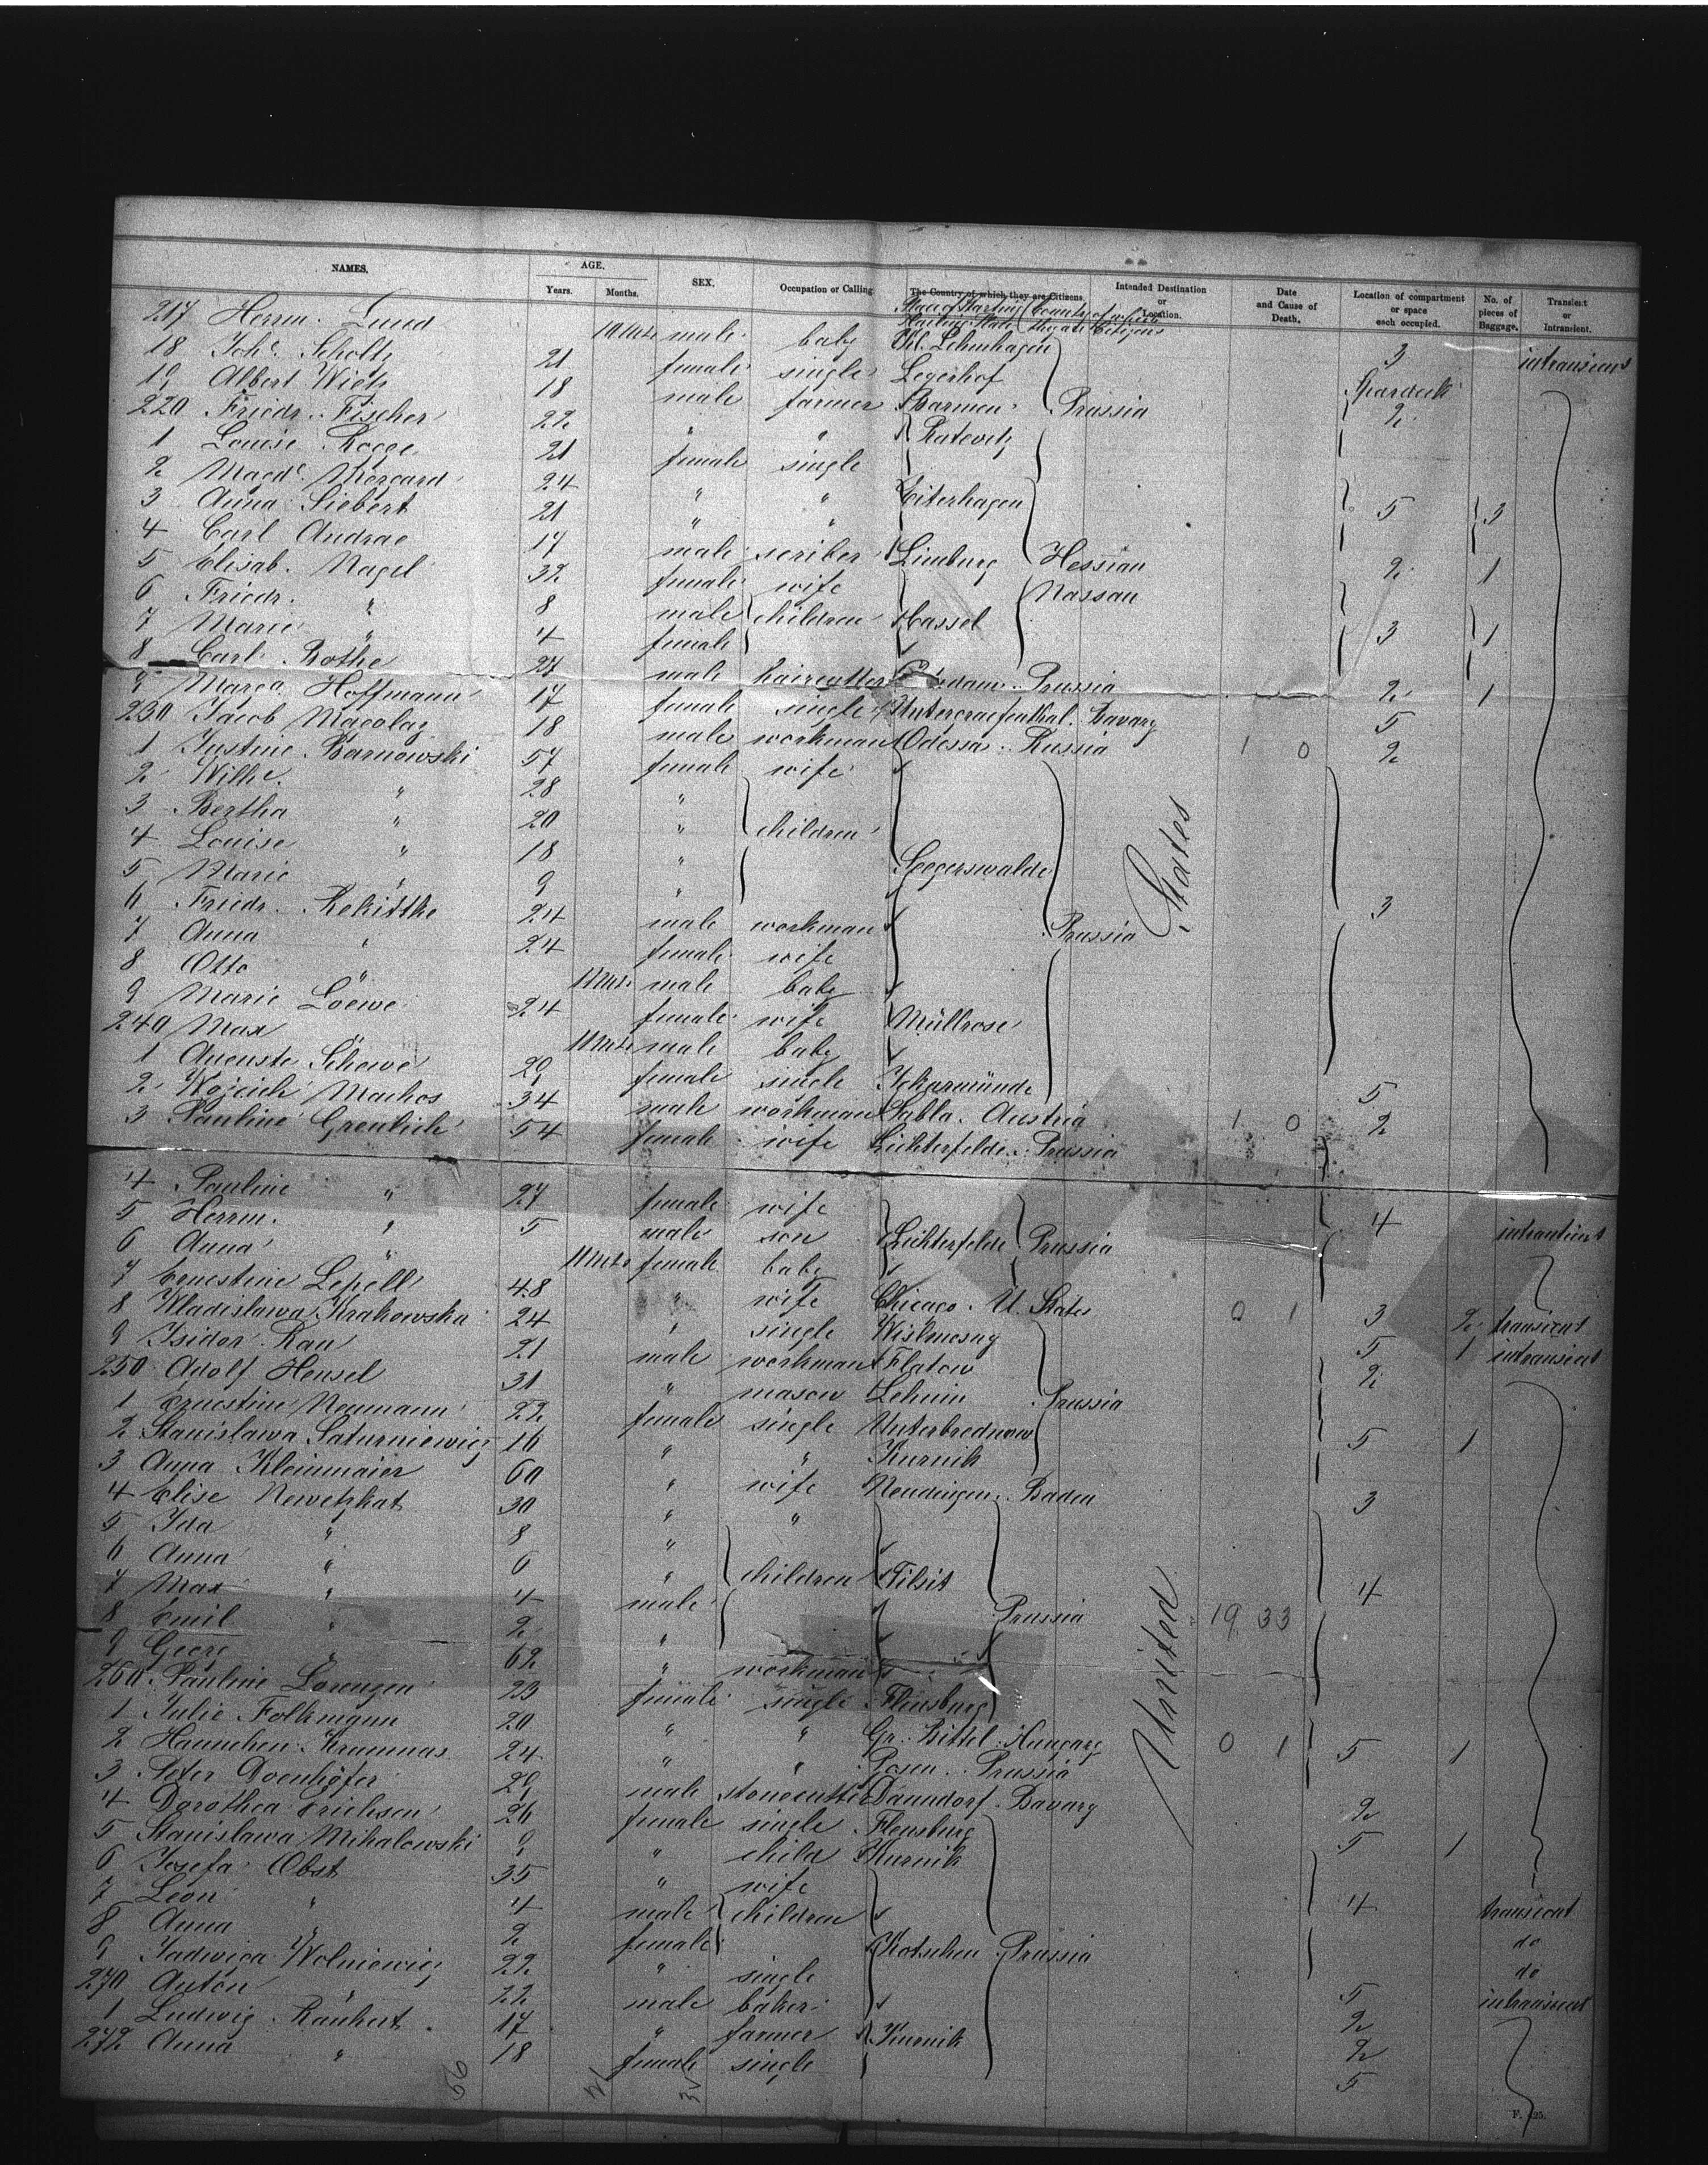 NAMES. AGE. SEX. Occupation or Calling The Country of which they are Citizens. Intended Destination or Location. Date and Cause of Death. Location of compartment or space each occupied. No. of pieces of Baggage. Transient or Intransient.
Years. Months. Place of Starting Country of which they are Citizens
217 Herrm. Lued 10 Mts male baby Kl. Lehnhagen 3 intransient
18 Joh. Scholtz 21 female single Legerhof
19 Albert Wietz 18 male farmer Barmen Prussia 2
220 Friedr. Fischer 22 " " Ratevitz
1 Louise Rogge 21 female single
2 Magd. Morgard 24 " " Eiterhagen
3 Anna Siebert 21 " " 5 3
4 Carl Andrae 17 male scriber Limburg Hessian 2 1
5 Elisab. Nagel 32 female wife Nassau
6 Friedr. " 8 male children Cassel
7 Marie " 4 female 3 1
8 Carl Rothe 27 male haircutter Prussia 2 1
9 Marga. Hoffmann 17 female single Untergraefenthal. Bavary 5
230 Jacob Macolay 18 male workman Odessa. Russia 1 0 2
1 Justine Barnowski 57 female wife
2 Wilhe. " 28 "
3 Bertha " 20 " children
4 Louise " 18 " Seegerswalde
5 Marie " 9 "
6 Friedr. Rekittke 24 male workman Prussia 3
7 Anna " 24 female wife
8 Otto " 11 Mts. male baby
9 Marie Loewe 24 female wife Müllrose
240 Max " 11 Mts male baby
1 Auguste Schewe 29 female single Uckermünde 5
2 Wojcieh Machos 34 male workman Sabla. Austria 1 0 2
3 Pauline Greulich 54 female wife Lichterfelde. Prussia
4 Pauline " 27 female wife
5 Herrm. " 5 male son Lichterfelde Prussia 4 intransient
6 Anna " 11 Mts female baby
7 Ernestine Lepell 48 " wife Chicago. U. States 0 1 3 2 transient
8 Wladislawa Krakowska 24 " single 5 1 intransient
9 Isidor Rau 21 male workman Flatow 2
250 Adolf Hensel 31 " mason Lehnin Prussia
1 Ernestine Neumann 22 female single Unterbrednow
2 Stanislawa Saturniewicz 16 " " Kurnik 5 1
3 Anna Kleinmaier 60 " wife Neudingen. Baden 3
4 Elise Newetzkat 30 " "
5 Ida " 8 "
6 Anna " 6 " children Tilsit
7 Max " 4 male Prussia 4
8 Emil " 2 " 19 33
9 Georg " 62 " workman
260 Pauline Lorenzen 23 female single Flensburg
1 Julie Folkmann 20 " " Gr. Bittel. Hungary 0 1 5 1
2 Hannchen Kramnas 24 " " Posen. Prussia
3 Peter Doenhöfer 29 male stonecutter Danndorf. Bavary 2
4 Dorothea Erichsen 26 female single Flensburg 5 1
5 Stanislawa Mihalowski 9 " child Kurnik
6 Josefa Obst 35 " wife
7 Leon " 4 male children 4 transient
8 Anna " 2 female do
9 Jadwiga Wolniewicz 22 " single Kotschen Prussia do
270 Anton " 22 male baker 5 intransient
1 Ludwig Rankert 17 " farmer Kurnik 2
272 Anna " 18 female single 2
5
United States
56
F. 125.